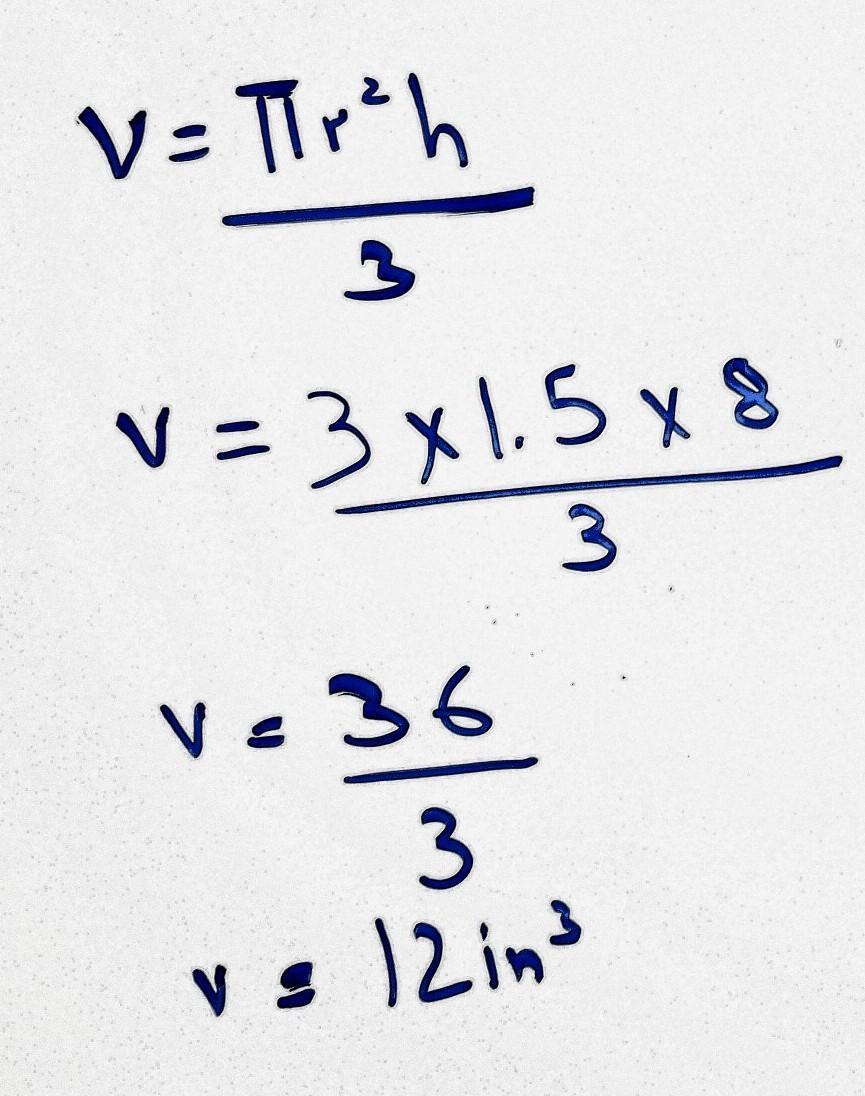 V = πr²h
3
V = 3 x 1.5 x 8
3
V = 36
3
V = 12in³